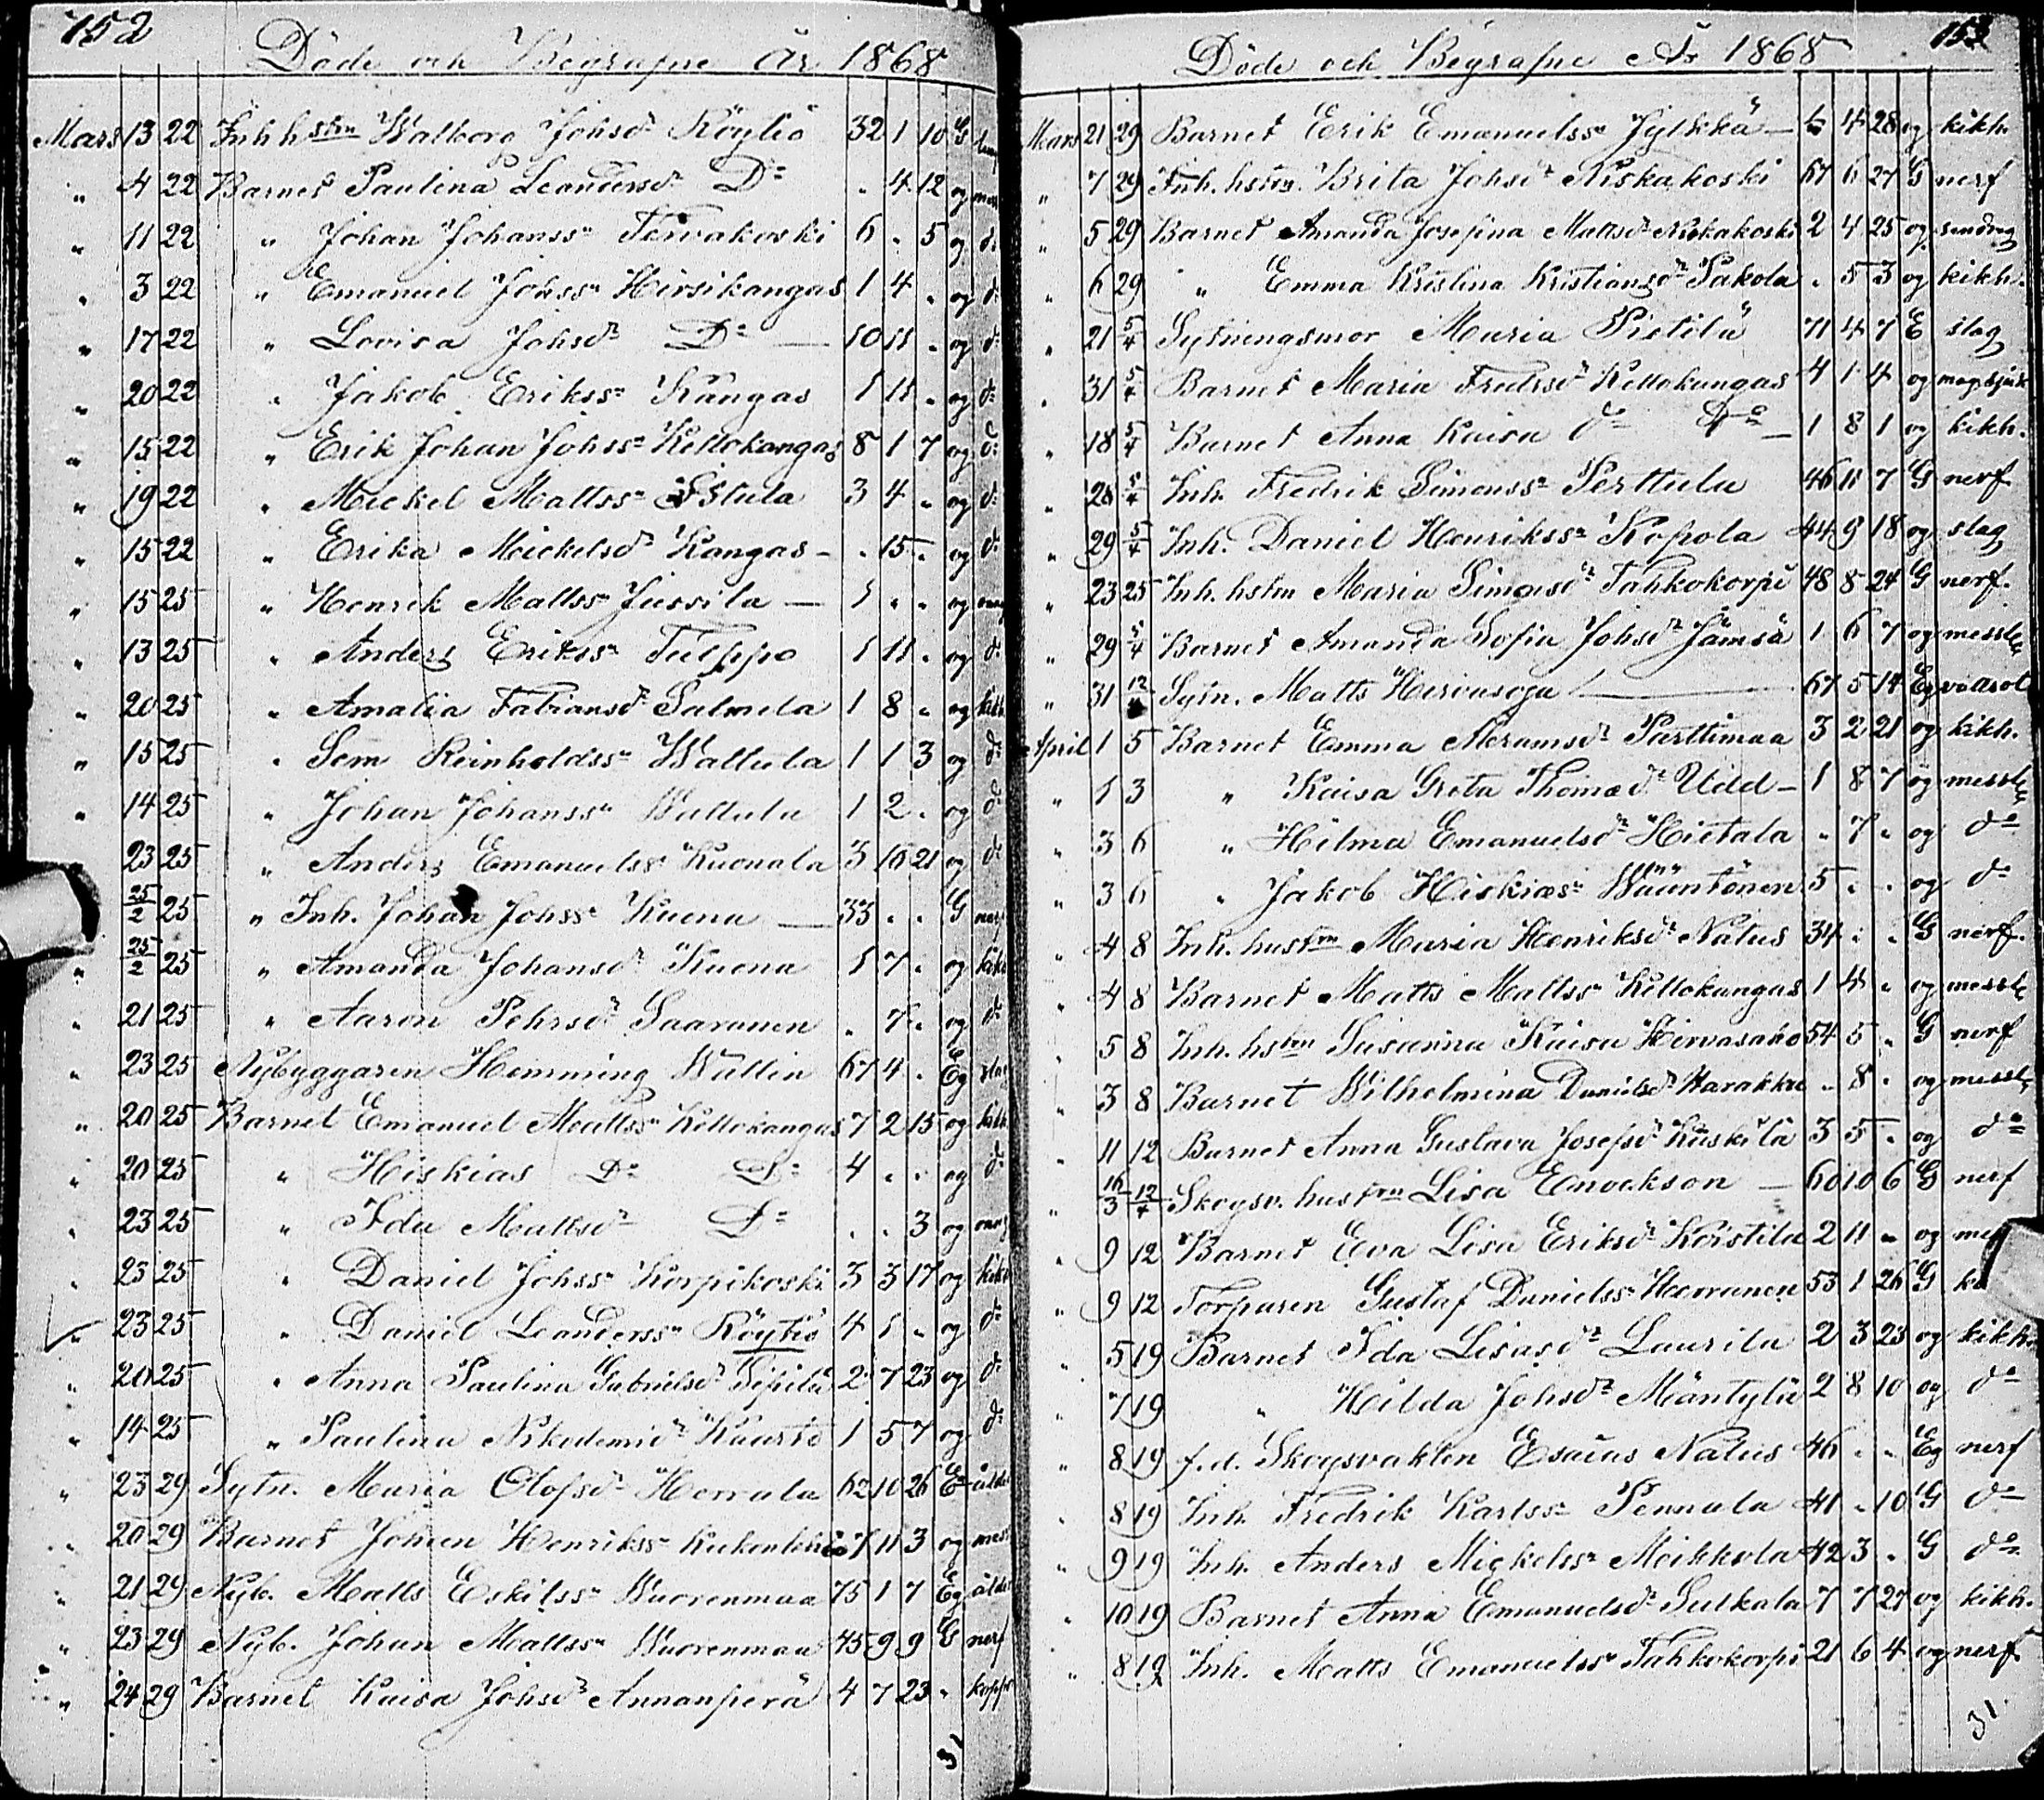 152
Döde och Begrafne År 1868
Mars 13 22 Inh hstru Walborg Johsdr Röytiö 32 1 10 G
" 4 22 Barnet Paulina Leandersdr Do . 4 12 og
" 11 22 " Johan Johanssn Tervakoski 6 . 5 og do
" 3 22 " Emanuel Johssn Hirsikangas 1 4 . og do
" 17 22 " Lovisa Johsdr Do — 10 11 . og do
" 20 22 " Jakob Erikssn Kangas 1 11 . og do
" 15 22 " Erik Johan Johssn Kellokangas 8 1 7 og do
" 19 22 " Mickel Mattssn 3 4 . og do
" 15 22 " Erika Mickelsdr Kangas - . 15 . og do
" 15 25 " Henrik Mattssn Jussila — 1 . . og
" 13 25 " Anders Erikssn Tulppo 1 11 . og do
" 20 25 " Amalia Fabiansdr Salmela 1 8 . og kikh
" 15 25 " Sem Reinholdssn Wattula 1 1 3 og do
" 14 25 " Johan Johanssn Wattula 1 2 . og do
" 23 25 " Anders Emanuelssn Kuonala 3 10 21 og do
25/2 25 " Inh. Johan Johssn Kuona — 33 . . G nerf
" 25/2 25 " Amanda Johansdr Kuona 1 7 . og kikh
" 21 25 " Aaron Pehrsdr Saaranen . 7 . og do
" 23 25 Nybyggaren Hemming Wallin 67 4 . Eg slag
" 20 25 Barnet Emanuel Mattssn Kellokangas 7 2 15 og kikh
" 20 25 " Hiskias Do Do 4 . . og do
" 23 25 " Ida Mattsdr Do . . 3 og
" 23 25 " Daniel Johssn Korpikoski 3 3 17 og kikh
" 23 25 " Daniel Leanderssn Röytiö 4 1 . og do
" 20 25 " Anna Paulina Gabrielsdr Sipilä 2 7 23 og do
" 14 25 " Paulina Nikodemidr 1 5 7 og do
" 23 29 Sytn. Maria Olofsdr Herrala 62 10 26 E ålder
" 20 29 Barnet Johan Henrikssn 7 11 3 og mess
" 21 29 Nyb. Matts Eskilssn Wuorenmaa 75 1 7 Eg ålder
" 23 29 Nyb. Johan Mattssn Wuorenmaa 45 9 9 G nerf
" 24 29 Barnet Kaisa Johsdr Annanperä 4 7 23 . kopp
31
153
Döde och Begrafne År 1868
Mars 21 29 Barnet Erik Emanuelssn Jylkkä — 6 4 28 og kikh.
" 7 29 Inh. hstru. Brita Johsdr Niskakoski 67 6 27 G nerf
" 5 29 Barnet Amanda Josefina Mattsdr Niskakoski 2 4 25 og sendrag
" 6 29 " Emma Kristina Kristiansdr Pakola . 5 3 og kikh.
" 21 5/4 Sytningsmor Maria Pietilä 71 4 7 E slag
" 31 5/4 Barnet Maria Fredrsdr Kellokangas 4 1 4 og magsjuk
" 18 5/4 Barnet Anna Kaisa do Do — 1 8 1 og kikh.
" 28 5/4 Inh. Fredrik Simonssn Perttula 46 11 7 G nerf
" 29 5/4 Inh. Daniel Henrikssn Kopola 44 9 18 og slag
" 23 25 Inh. hstru Maria Simonsdr Tahkokorpi 48 8 24 G nerf.
" 29 5/4 Barnet Amanda Sofia Johsdr Jämsä 1 6 7 og messl
" 31 12 Sytn. Matts Hirvasoja — 67 5 14 Eg vattsot
April 1 5 Barnet Emma Abramsdr Parttimaa 3 2 21 og kikh.
" 1 3 " Kaisa Greta Thomædr Udd - 1 8 7 og messl
" 3 6 " Hilma Emanuelsdr Hietala . 7 . og do
" 3 6 " Jakob Hiskiæsn Wäänäinen 5 . . og do
" 4 8 Inh. hustru Maria Henriksdr Natus 34 . . G nerf.
" 4 8 Barnet Matts Mattssn Kellokangas 1 4 . og messl
" 5 8 Inh. hstru Susanna Kaisa Hirvasaho 54 5 . G nerf
" 3 8 Barnet Wilhelmina Danielsdr Harakka . 8 . og messl
" 11 12 Barnet Anna Gustava Josefsdr 3 5 . og do
" 16/3 12/4 Skogsv. hustru Lisa Enockson — 60 10 6 G nerf
" 9 12 Barnet Eva Lisa Eriksdr Koistila 2 11 . og
" 9 12 Torparen Gustaf Danielssn Herranen 53 1 26 G
" 5 19 Barnet Ida Lisasdr Laurila 2 3 23 og kikh
" 7 19 " Hilda Johsdr Mäntylä 2 8 10 og do
" 8 19 f.d. Skogsvakten Esaias Natus 46 . . Eg nerf
" 8 19 Inh. Fredrik Karlssn Pennala 41 . 10 G do
" 9 19 Inh. Anders Mickelssn Meikkola 42 3 . G do
" 10 19 Barnet Anna Emanuelsdr Sulkala 7 7 27 og kikh.
" 8 19 Inh. Matts Emanuelssn Tahkokorpi 21 6 4 og nerf
31